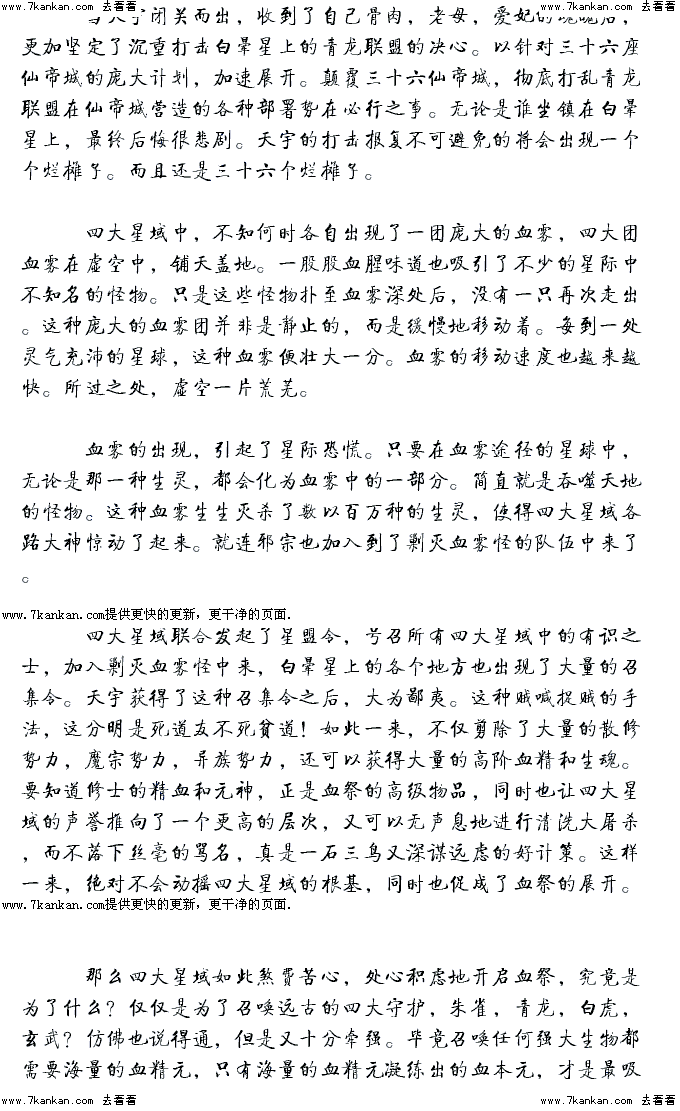 www.7kankan.com 去看看 www.7kankan.com 去看看 www.7kankan.com 去看看
当天宇闭关而出，收到了自己骨肉，老母，爱妃的魂魄后，
更加坚定了沉重打击白晕星上的青龙联盟的决心。以针对三十六座
仙帝城的庞大计划，加速展开。颠覆三十六仙帝城，彻底打乱青龙
联盟在仙帝城营造的各种部署势在必行之事。无论是谁坐镇在白晕
星上，最终后悔很悲剧。天宇的打击报复不可避免的将会出现一个
个烂摊子。而且还是三十六个烂摊子。
四大星域中，不知何时各自出现了一团庞大的血雾，四大团
血雾在虚空中，铺天盖地。一股股血腥味道也吸引了不少的星际中
不知名的怪物。只是这些怪物扑至血雾深处后，没有一只再次走出
。这种庞大的血雾团并非是静止的，而是缓慢地移动着。每到一处
灵气充沛的星球，这种血雾便壮大一分。血雾的移动速度也越来越
快。所过之处，虚空一片荒芜。
血雾的出现，引起了星际恐慌。只要在血雾途径的星球中，
无论是那一种生灵，都会化为血雾中的一部分。简直就是吞噬天地
的怪物。这种血雾生生灭杀了数以百万种的生灵，使得四大星域各
路大神惊动了起来。就连邪宗也加入到了剿灭血雾怪的队伍中来了
。
www.7kankan.com提供更快的更新，更干净的页面.
四大星域联合发起了星盟令，号召所有四大星域中的有识之
士，加入剿灭血雾怪中来，白晕星上的各个地方也出现了大量的召
集令。天宇获得了这种召集令之后，大为鄙夷。这种贼喊捉贼的手
法，这分明是死道友不死贫道！如此一来，不仅剪除了大量的散修
势力，魔宗势力，异族势力，还可以获得大量的高阶血精和生魂。
要知道修士的精血和元神，正是血祭的高级物品，同时也让四大星
域的声誉推向了一个更高的层次，又可以无声息地进行清洗大屠杀
，而不落下丝毫的骂名，真是一石三鸟又深谋远虑的好计策。这样
一来，绝对不会动摇四大星域的根基，同时也促成了血祭的展开。
www.7kankan.com提供更快的更新，更干净的页面.
那么四大星域如此煞费苦心，处心积虑地开启血祭，究竟是
为了什么？仅仅是为了召唤远古的四大守护，朱雀，青龙，白虎，
玄武？仿佛也说得通，但是又十分牵强。毕竟召唤任何强大生物都
需要海量的血精元，只有海量的血精元凝练出的血本元，才是最吸
www.7kankan.com 去看看 www.7kankan.com 去看看 www.7kankan.com 去看看